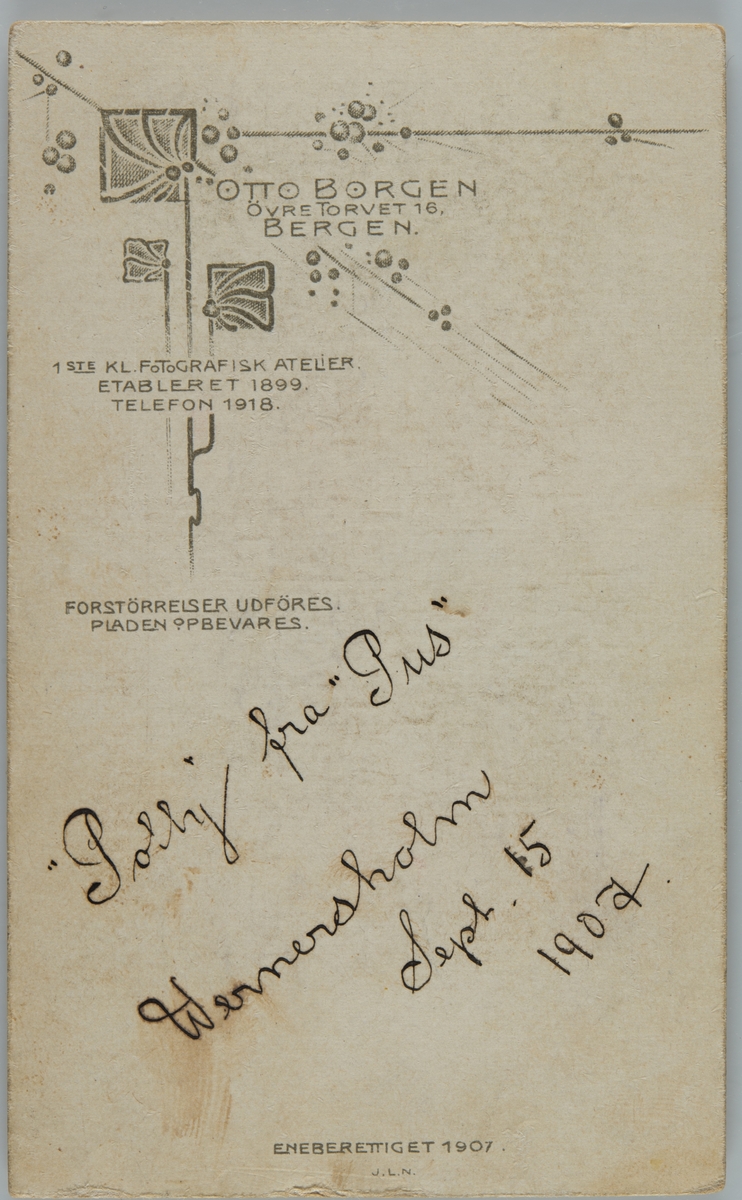 OTTO BORGEN
ÖVRE TORVET 16,
BERGEN.
1STE KL. FOTOGRAFISK ATELIER.
ETABLERET 1899.
TELEFON 1918.
FORSTÖRRELSER UDFÖRES.
PLADEN OPBEVARES.
"Polly" fra "Pus"
Wernersholm
Sept. 15
1907.
ENEBERETTIGET 1907.
J.L.N.